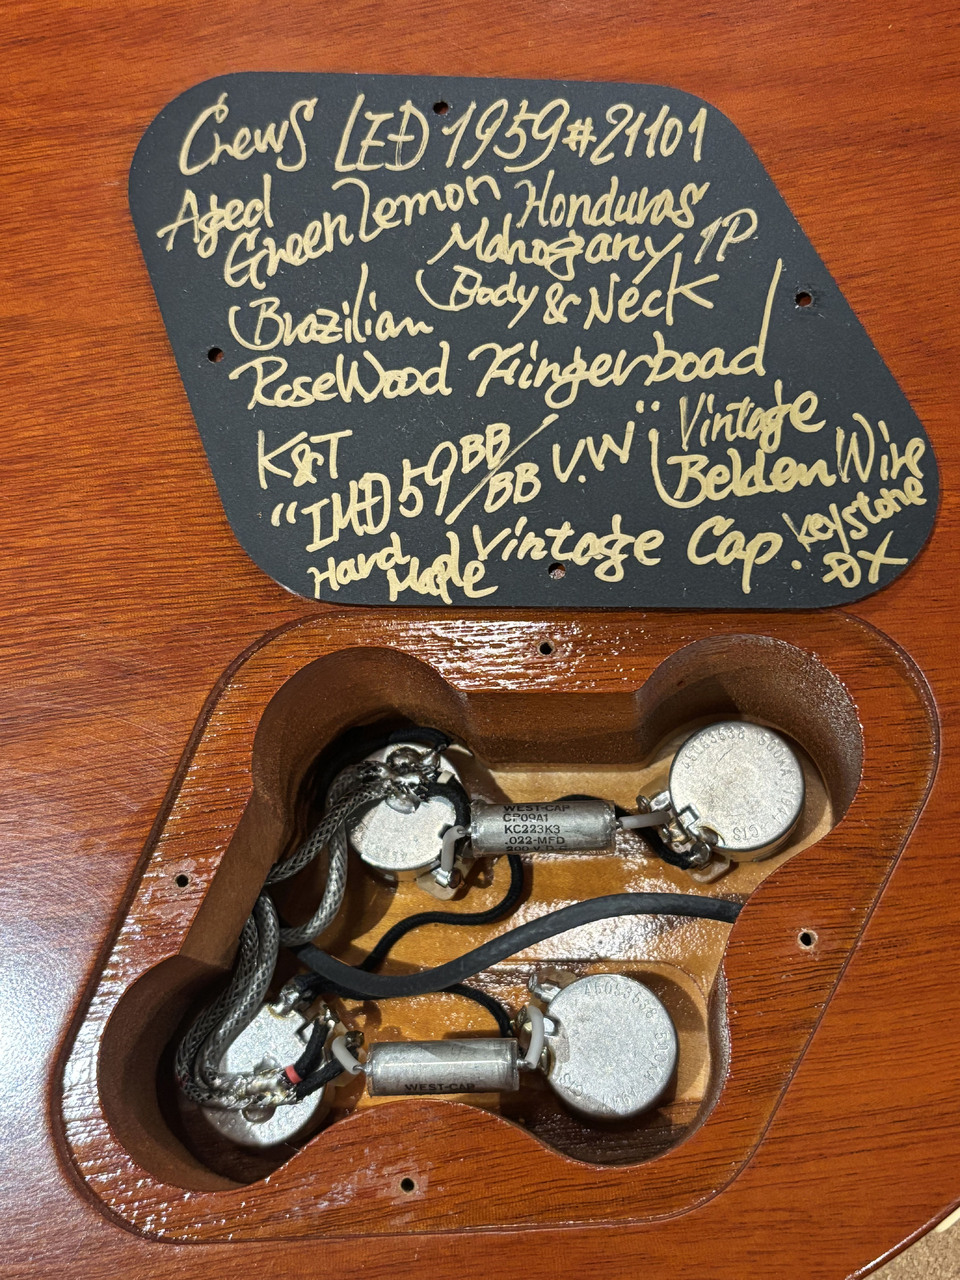 Crews LED 1959 #21101
Aged Green Lemon
Honduras Mahogany 1P
Body & Neck
Brazilian
RoseWood Fingerboad
K&T
"IMD59 BB/BB V.W"
Vintage
Belden Wire
Hard Maple
Vintage Cap.
Keystone
DX
WEST-CAP
CP09A1
KC223K3
.022-MFD
200-V.D.C
CTS
WEST-CAP